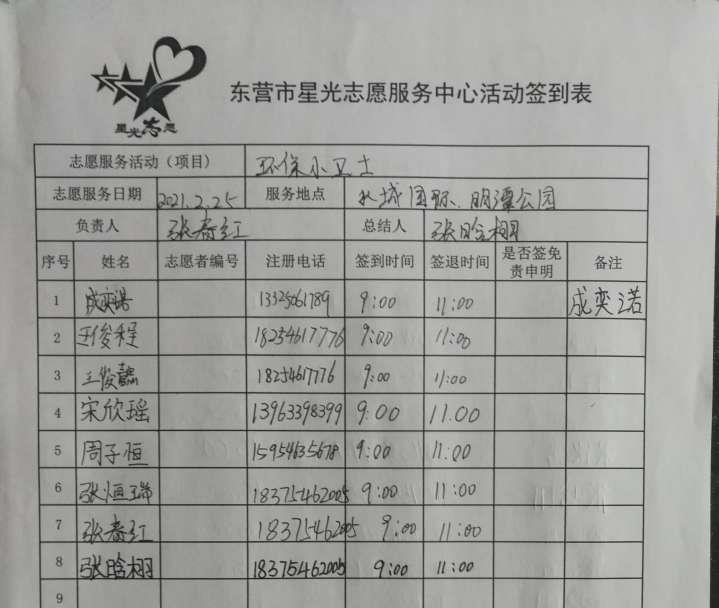 星光志愿
东营市星光志愿服务中心活动签到表
志愿服务活动（项目） 环保小卫士
志愿服务日期 2021.2.25 服务地点 长城国际、明潭公园
负责人 张春红 总结人 张晗栩
序号 姓名 志愿者编号 注册电话 签到时间 签退时间 是否签免责申明 备注
1 成奕诺 13325061789 9:00 11:00 成奕诺
2 王俊程 18254617776 9:00 11:00
3 王俊懿 18254617776 9:00 11:00
4 宋欣瑶 13963398399 9:00 11.00
5 周子恒 15954635678 9:00 11:00
6 张恒瑞 18375462005 9:00 11:00
7 张春红 18375462005 9:00 11:00
8 张晗栩 18375462005 9:00 11:00
9